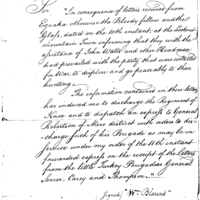 Sir In consequence of letters received from
Eskaka otherwise the Bloody fellow and the
Glass, dated on the 10th instant, at the Lookout
mountain Town informing that they with the
assistance of John Watts and other Headmen
had prevailed with the party that were collected
for War, to disperse and go peaceably to their
hunting.
The information contained in these letters
has induced me to discharge the Regiment of
Knox and to dispatch an express to General
Robertson of Mero district with orders to dis-
charge such of his Brigade as may be in
service under my order of the 11th instant
forwarded express on the receipt of the letters
from the Little Turkey Brigadier General
Sevier, Carey and Thompson.
(signed) "Wm Blount"